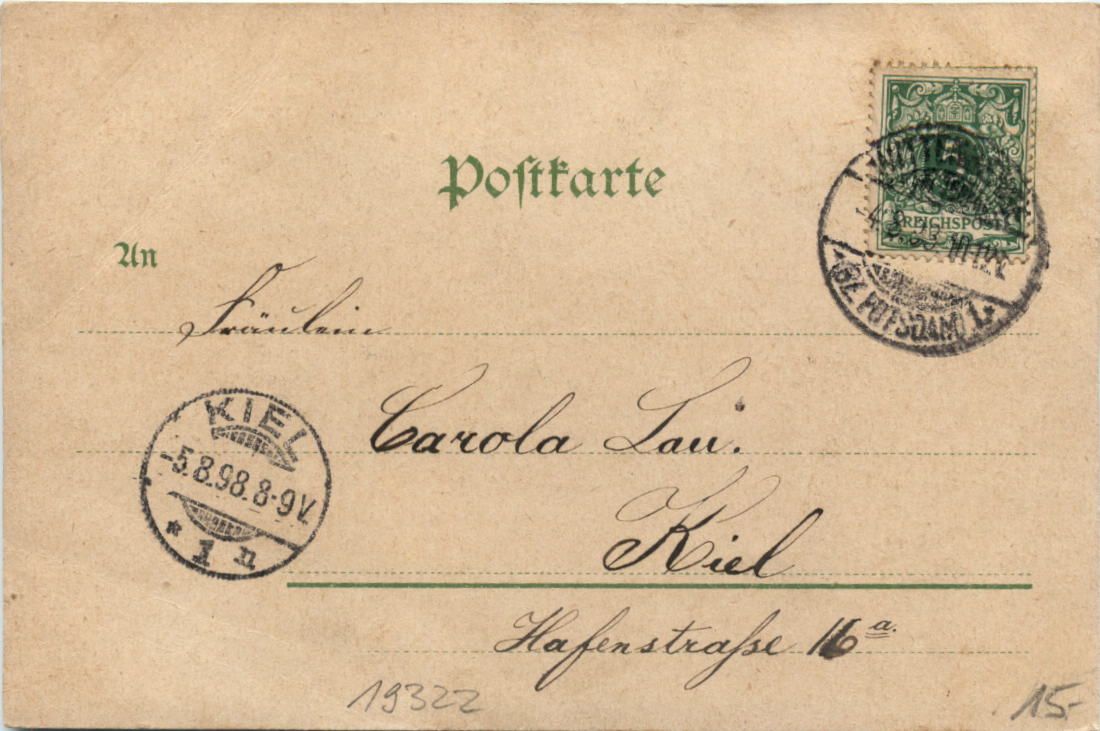 Postkarte
REICHSPOST
-4.8.98
(BZ. POTSDAM) 1.*
An
Fräulein
Carola Lau.
KIEL
-5.8.98.8-9V.
* 1 n
Kiel
Hafenstraße 16 a.
19322
15.-